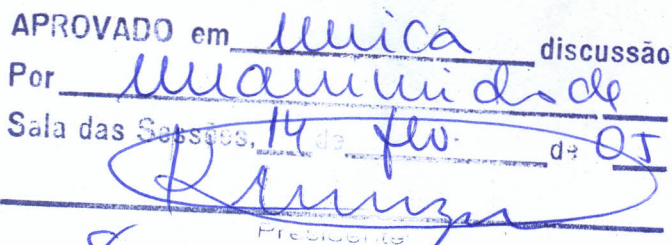 APROVADO em unica discussão
Por unanimidade
Sala das Sessões, 14 de fev. de 05
Presidente